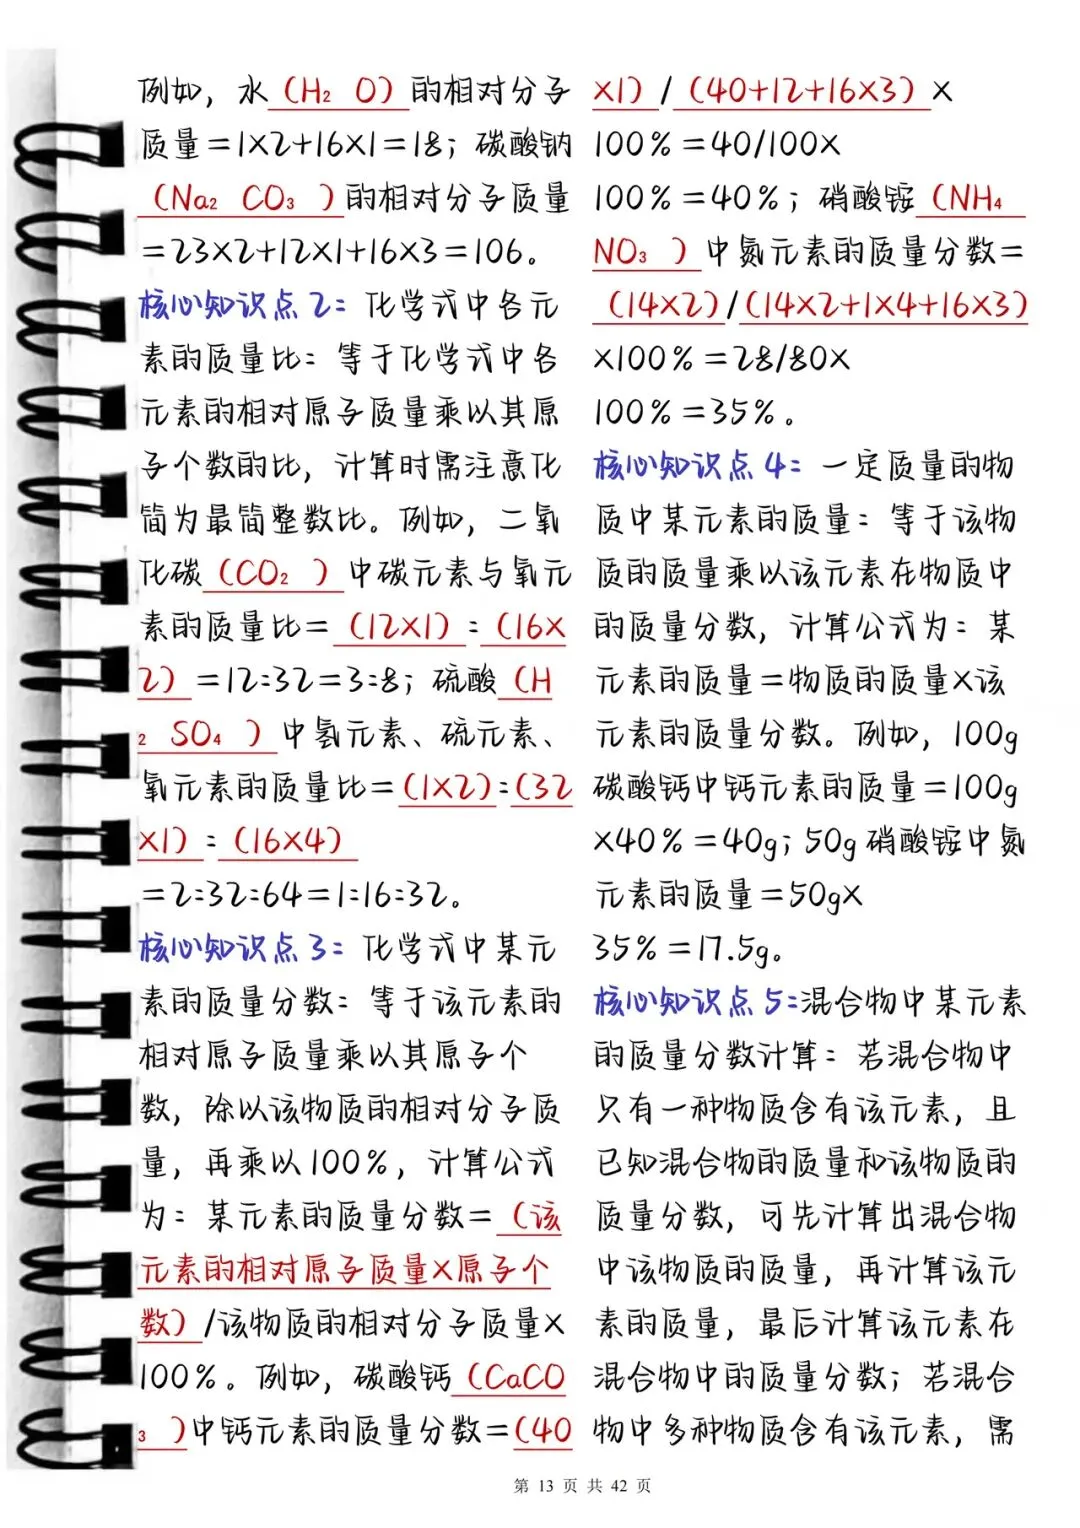 例如，水（H₂ O）的相对分子
质量＝1×2+16×1＝18；碳酸钠
（Na₂ CO₃ ）的相对分子质量
＝23×2+12×1+16×3＝106。
核心知识点2：化学式中各元
素的质量比：等于化学式中各
元素的相对原子质量乘以其原
子个数的比，计算时需注意化
简为最简整数比。例如，二氧
化碳（CO₂ ）中碳元素与氧元
素的质量比＝（12×1）:（16×
2）＝12:32＝3:8；硫酸（H
₂ SO₄ ）中氢元素、硫元素、
氧元素的质量比＝（1×2）:（32
×1）:（16×4）
＝2:32:64＝1:16:32。
核心知识点3：化学式中某元
素的质量分数：等于该元素的
相对原子质量乘以其原子个
数，除以该物质的相对分子质
量，再乘以100%，计算公式
为：某元素的质量分数＝（该
元素的相对原子质量×原子个
数）/该物质的相对分子质量×
100%。例如，碳酸钙（CaCO
₃ ）中钙元素的质量分数＝（40
×1）/（40+12+16×3）×
100%＝40/100×
100%＝40%；硝酸铵（NH₄
NO₃ ）中氮元素的质量分数＝
（14×2）/（14×2+1×4+16×3）
×100%＝28/80×
100%＝35%。
核心知识点4：一定质量的物
质中某元素的质量：等于该物
质的质量乘以该元素在物质中
的质量分数，计算公式为：某
元素的质量＝物质的质量×该
元素的质量分数。例如，100g
碳酸钙中钙元素的质量＝100g
×40%＝40g；50g硝酸铵中氮
元素的质量＝50g×
35%＝17.5g。
核心知识点5：混合物中某元素
的质量分数计算：若混合物中
只有一种物质含有该元素，且
已知混合物的质量和该物质的
质量分数，可先计算出混合物
中该物质的质量，再计算该元
素的质量，最后计算该元素在
混合物中的质量分数；若混合
物中多种物质含有该元素，需
第 13 页 共 42 页